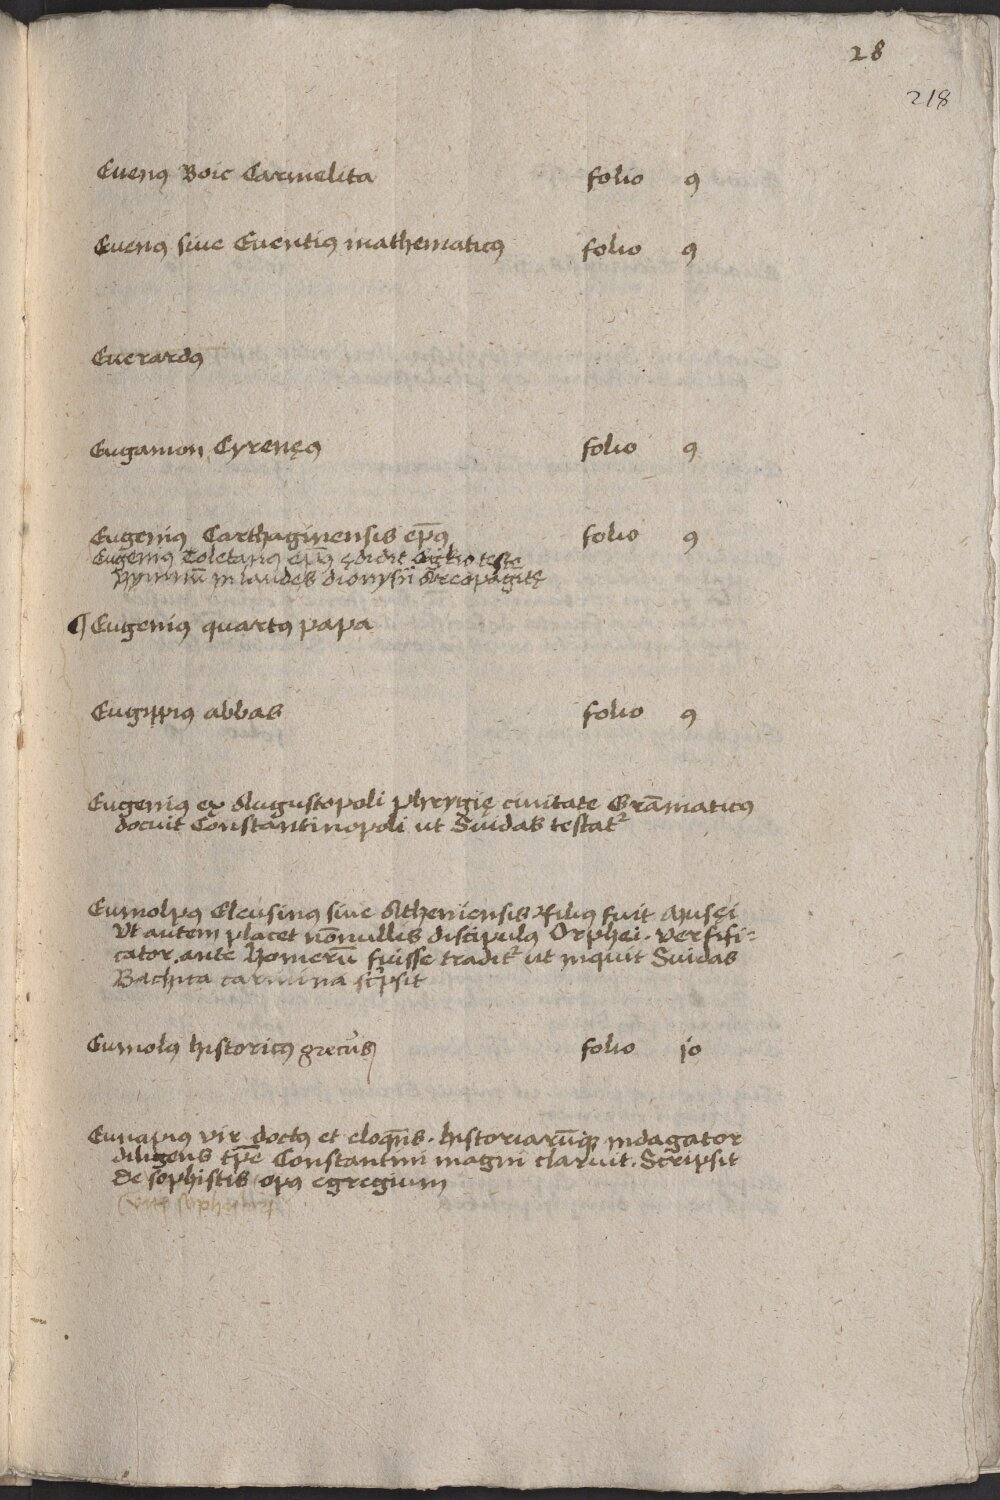 28
218
Euenꝰ Boic Carmelita folio 9
Euenꝰ siue Euentiꝰ mathematicꝰ folio 9
Euerardꝰ
Eugamon Cyrenęꝰ folio 9
Eugeniꝰ Carthaginensis ep̄ꝰ folio 9
Eugeniꝰ Toletanꝰ ep̄ꝰ ędidit teste
hymnū in laudes dionysii Areopagitę
Eugeniꝰ quartꝰ papa
Eugippiꝰ abbas folio 9
Eugeniꝰ ex Augustopoli phrygię ciuitate Grāmaticꝰ
docuit Constantinopoli ut Suidas testat᷑
Eumolpꝰ Eleusinꝰ siue Atheniensis filiꝰ fuit Musęi
Vt autem placet nōnullis discipulꝰ Orphei. versifi=
cator ante homerū fuisse tradit᷑ ut inquit Suidas
Bachica carmina scͥpsit
Eumolꝰ historicꝰ grecus folio jo
Eunapiꝰ vir doctꝰ et eloqn̄s. historiarūqꝫ indagator
diligens tp̄e Constantini magni claruit. Scripsit
de sophistis opꝰ egregium